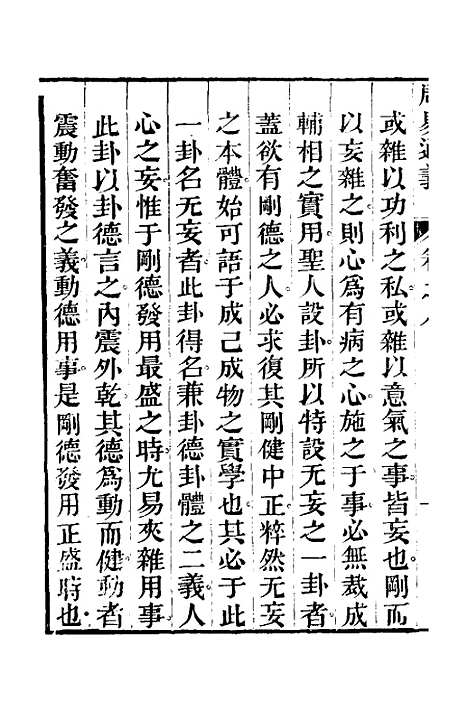 或雜以功利之私或雜以意氣之事皆妄也剛而
以妄雜之則心爲有病之心施之于事必無裁成
輔相之實用聖人設卦所以特設无妄之一卦者
蓋欲有剛德之人必求復其剛健中正粹然无妄
之本體始可語于成己成物之實學也其必于此
一卦名无妄者此卦得名兼卦德卦體之二義人
心之妄惟于剛德發用最盛之時尤易夾雜用事
此卦以卦德言之內震外乾其德爲動而健動者
震動奮發之義動德用事是剛德發用正盛時也